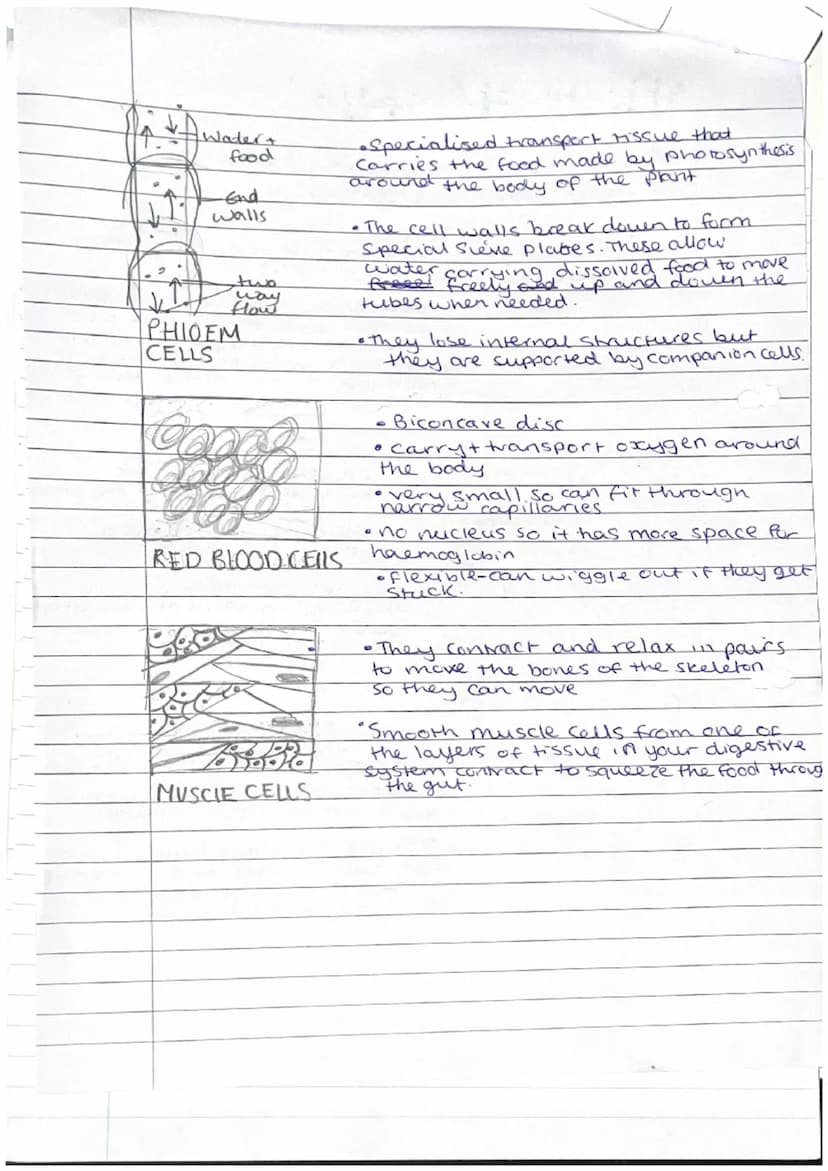 Water +
food
End
walls
two
way
flow
PHIOEM
CELLS
• Specialised transport tissue that
carries the food made by photosynthesis
around the body of the plant
• The cell walls break down to form
special sieve plates. These allow
water carrying dissolved food to move
freely up and down the
tubes when needed.
• They lose internal structures but
they are supported by companion cells.
RED BLOOD CELLS
• Biconcave disc
• carry + transport oxygen around
the body
• very small so can fit through
narrow capillaries
• no nucleus so it has more space for
haemoglobin
• flexible - can wiggle out if they get
stuck.
MUSCLE CELLS
• They contract and relax in pairs
to move the bones of the skeleton
so they can move
• Smooth muscle cells from one of
the layers of tissue in your digestive
system contract to squeeze the food throug
the gut.